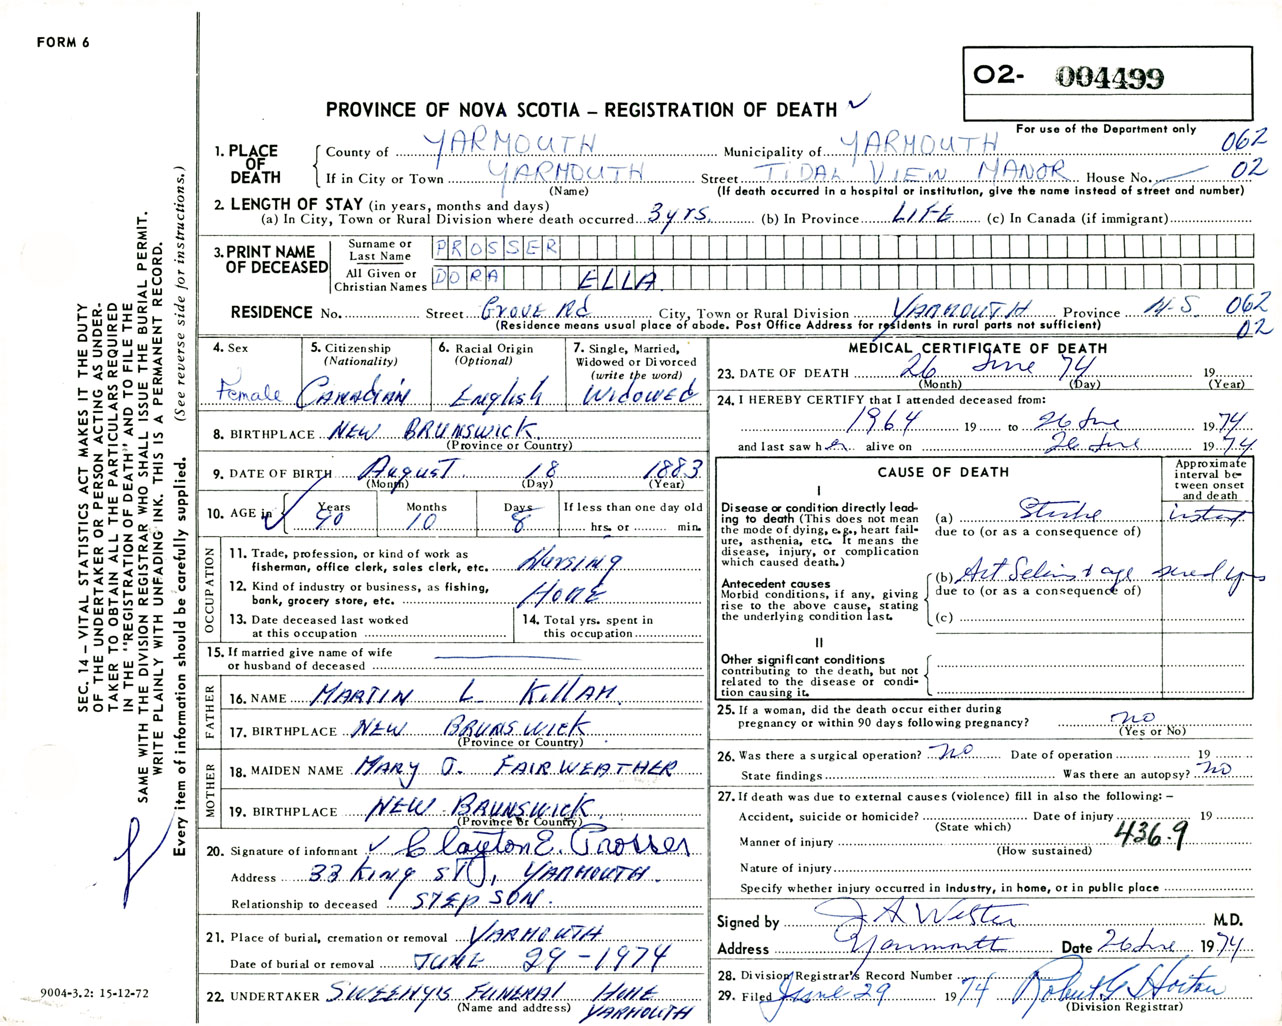 FORM 6
O2- 004499
For use of the Department only
PROVINCE OF NOVA SCOTIA – REGISTRATION OF DEATH ✓
1. PLACE OF DEATH
County of YARMOUTH Municipality of YARMOUTH 062
If in City or Town YARMOUTH Street TIDAL VIEW MANOR House No. 02
(Name) (If death occurred in a hospital or institution, give the name instead of street and number)
2. LENGTH OF STAY (in years, months and days)
(a) In City, Town or Rural Division where death occurred 3 yrs. (b) In Province LIFE (c) In Canada (if immigrant)
3. PRINT NAME OF DECEASED
Surname or Last Name PROSSER
All Given or Christian Names DORA ELLA
RESIDENCE No. Street Grove Rd City, Town or Rural Division YARMOUTH Province N.S. 062
(Residence means usual place of abode. Post Office Address for residents in rural parts not sufficient) 02
4. Sex
Female
5. Citizenship
(Nationality)
Canadian
6. Racial Origin
(Optional)
English
7. Single, Married,
Widowed or Divorced
(write the word)
Widowed
8. BIRTHPLACE NEW BRUNSWICK
(Province or Country)
9. DATE OF BIRTH August 18 1883
(Month) (Day) (Year)
10. AGE in Years Months Days If less than one day old
90 10 8 hrs. or min.
OCCUPATION
11. Trade, profession, or kind of work as
fisherman, office clerk, sales clerk, etc. Nursing
12. Kind of industry or business, as fishing,
bank, grocery store, etc. Home
13. Date deceased last worked
at this occupation
14. Total yrs. spent in
this occupation
15. If married give name of wife
or husband of deceased
FATHER
16. NAME MARTIN L KILLAM
17. BIRTHPLACE NEW BRUNSWICK
(Province or Country)
MOTHER
18. MAIDEN NAME MARY J. FAIRWEATHER
19. BIRTHPLACE NEW BRUNSWICK
(Province or Country)
20. Signature of informant ✓ Clayton E. Prosser
Address 33 King ST, YARMOUTH.
Relationship to deceased STEP SON.
21. Place of burial, cremation or removal YARMOUTH
Date of burial or removal JUNE 29-1974
22. UNDERTAKER SWEENYS FUNERAL HOME
(Name and address) YARMOUTH
MEDICAL CERTIFICATE OF DEATH
23. DATE OF DEATH 26 June 74 19
(Month) (Day) (Year)
24. I HEREBY CERTIFY that I attended deceased from:
1964 19 to 26 June 1974
and last saw her alive on 26 June 1974
CAUSE OF DEATH
Approximate
interval be-
tween onset
and death
I
Disease or condition directly lead-
ing to death (This does not mean
the mode of dying, e.g., heart fail-
ure, asthenia, etc. It means the
disease, injury, or complication
which caused death.)
(a) Stroke instant
due to (or as a consequence of)
Antecedent causes
Morbid conditions, if any, giving
rise to the above cause, stating
the underlying condition last.
(b) Art & age
due to (or as a consequence of)
(c)
II
Other significant conditions
contributing to the death, but not
related to the disease or condi-
tion causing it.
25. If a woman, did the death occur either during
pregnancy or within 90 days following pregnancy? no
(Yes or No)
26. Was there a surgical operation? no Date of operation 19
State findings Was there an autopsy? no
27. If death was due to external causes (violence) fill in also the following: –
Accident, suicide or homicide? Date of injury 19
(State which) 436.9
Manner of injury
(How sustained)
Nature of injury
Specify whether injury occurred in industry, in home, or in public place
Signed by M.D.
Address Yarmouth Date 26 June 1974
28. Division Registrar's Record Number
29. Filed June 29 1974 Robert G Horton
(Division Registrar)
SEC. 14 – VITAL STATISTICS ACT MAKES IT THE DUTY
OF THE UNDERTAKER OR PERSON ACTING AS UNDER-
TAKER TO OBTAIN ALL THE PARTICULARS REQUIRED
IN THE "REGISTRATION OF DEATH" AND TO FILE THE
SAME WITH THE DIVISION REGISTRAR WHO SHALL ISSUE THE BURIAL PERMIT.
WRITE PLAINLY WITH UNFADING INK. THIS IS A PERMANENT RECORD.
Every item of information should be carefully supplied. (See reverse side for instructions.)
9004-3.2: 15-12-72